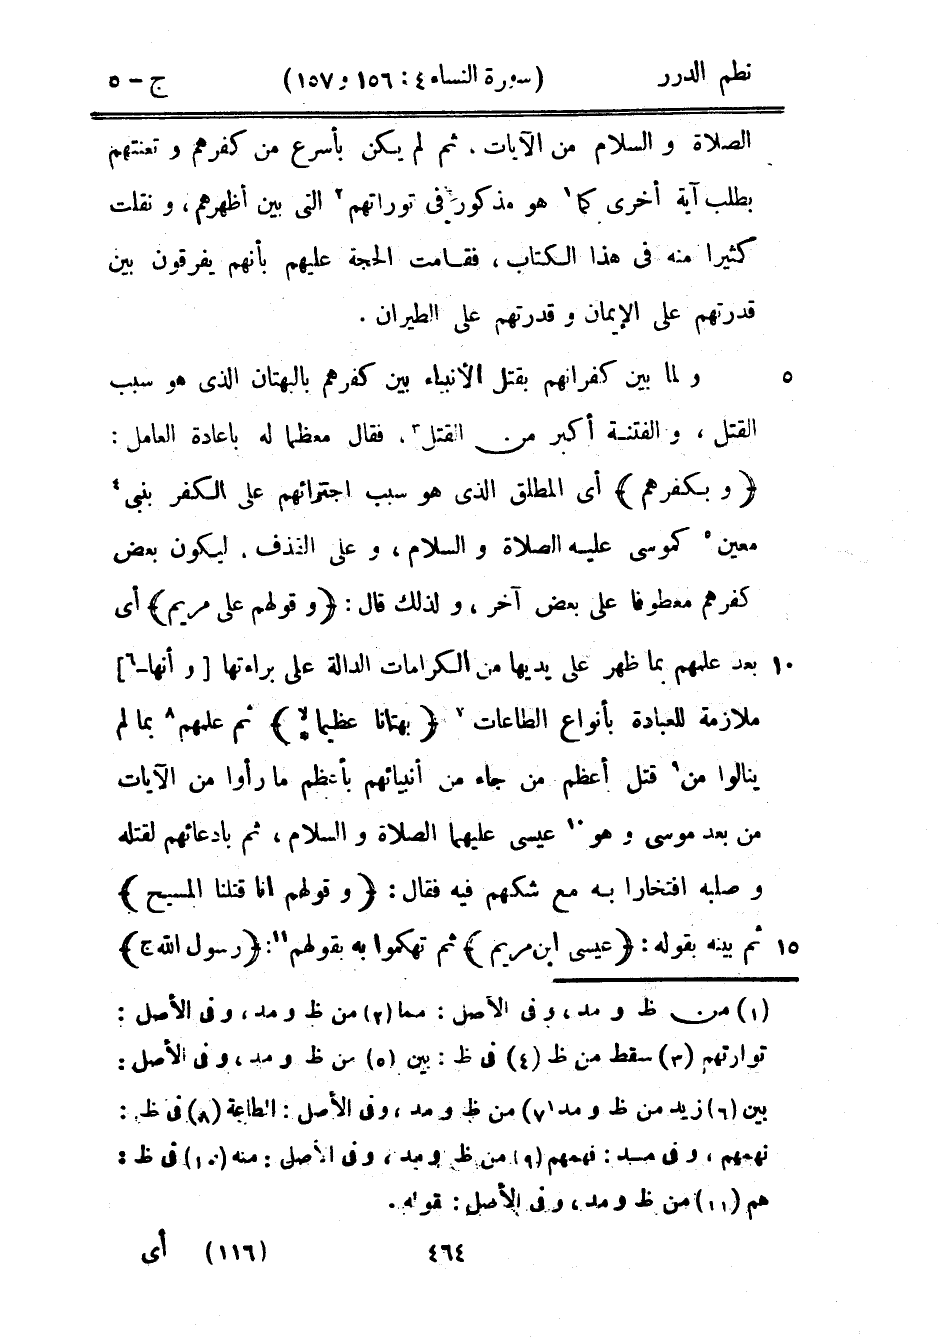 نظم الدرر (سورة النساء ٤ : ١٥٦ و ١٥٧) ج – ٥
الصلاة و السلام من الآيات . ثم لم يكن بأسرع من كفرهم و تعنتهم
بطلب آية أخرى كما١ هو مذكور فى توراتهم٢ التى بين أظهرهم ، و نقلت
كثيرا منه فى هذا الكتاب ، فقامت الحجة عليهم بأنهم يفرقون بين
قدرتهم على الإيمان و قدرتهم على الطيران .
٥ و لما بين كفرانهم بقتل الأنبياء بين كفرهم بالبهتان الذى هو سبب
القتل ، و الفتنة أكبر من القتل٣ ، فقال معظما له باعادة العامل :
﴿ و بكفرهم ﴾ أى المطلق الذى هو سبب اجترائهم على الكفر بنبى٤
معين٥ كموسى عليه الصلاة و السلام ، و على القذف . ليكون بعض
كفرهم معطوفا على بعض آخر ، و لذلك قال : ﴿ و قولهم على مريم ﴾ أى
١٠ بعد علمهم بما ظهر على يديها من الكرامات الدالة على براءتها [ و أنها-٦]
ملازمة للعبادة بأنواع الطاعات٧ ﴿ بهتانا عظيما لا * ﴾ ثم علمهم٨ بما لم
ينالوا من٩ قتل أعظم من جاء من أنبيائهم بأعظم ما رأوا من الآيات
من بعد موسى و هو١٠ عيسى عليهما الصلاة و السلام ، ثم بادعائهم لقتله
و صلبه افتخارا به مع شكهم فيه فقال : ﴿ و قولهم انا قتلنا المسيح ﴾
١٥ ثم بينه بقوله : ﴿ عيسى ابن مريم ﴾ ثم تهكموا به بقولهم١١ : ﴿ رسول الله ج ﴾
(١) من ظ و مد ، و فى الأصل : مما (٢) من ظ و مد ، و فى الأصل :
توارتهم (٣) سقط من ظ (٤) فى ظ : بين (٥) من ظ و مد ، و فى الأصل :
بين (٦) زيد من ظ و مد (٧) من ظ و مد ، وفى الأصل : الطاعة (٨) فى ظ :
نهمهم ، و فى مد : فهمهم (٩) من ظ و مد ، و فى الأصل : منه (١٠) فى ظ :
هم (١١) من ظ و مد ، و فى الأصل : قوله .
٤٦٤ (١١٦) أى